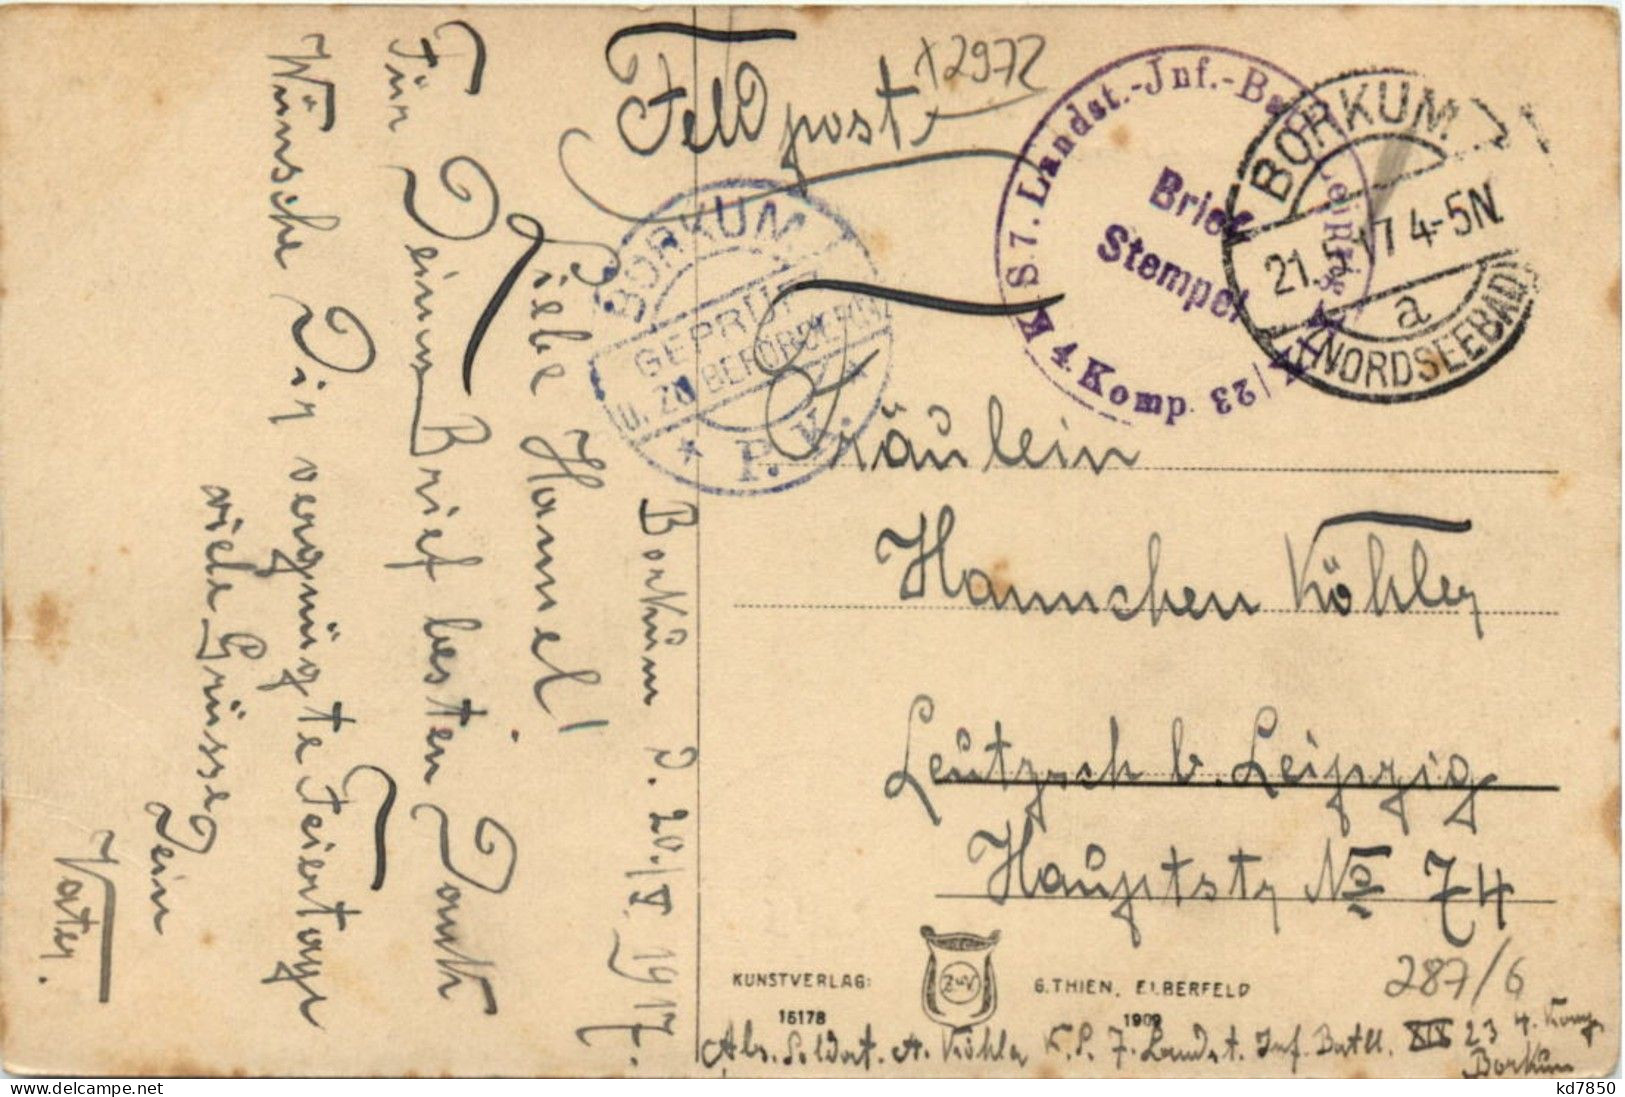 Feldpost
x2972
K S 7. Landst.-Jnf.-Bat. Leipzig
4. Komp. XIX/23
Brief
Stempel
BORKUM
21.5.17 4-5N.
a
(NORDSEEBAD)
BORKUM
GEPRÜFT
U. ZU BEFÖRDERN
P. K.
Borkum d. 20./V. 1917.
Liebe Hannel!
Für Deinen Brief besten Dank
Wünsche Dir vergnügte Feiertage
viele Grüsse
Dein
Vater.
Fräulein
Hannchen Köhler
Leutzsch b. Leipzig
Hauptstr No 74
287/6
KUNSTVERLAG: ZuV G. THIEN, ELBERFELD
15178 1909
Abs. Soldat. A. Köhler K.S. 7. Landst. Inf. Batll. XIX 23 4. Komp
Borkum
kd7850